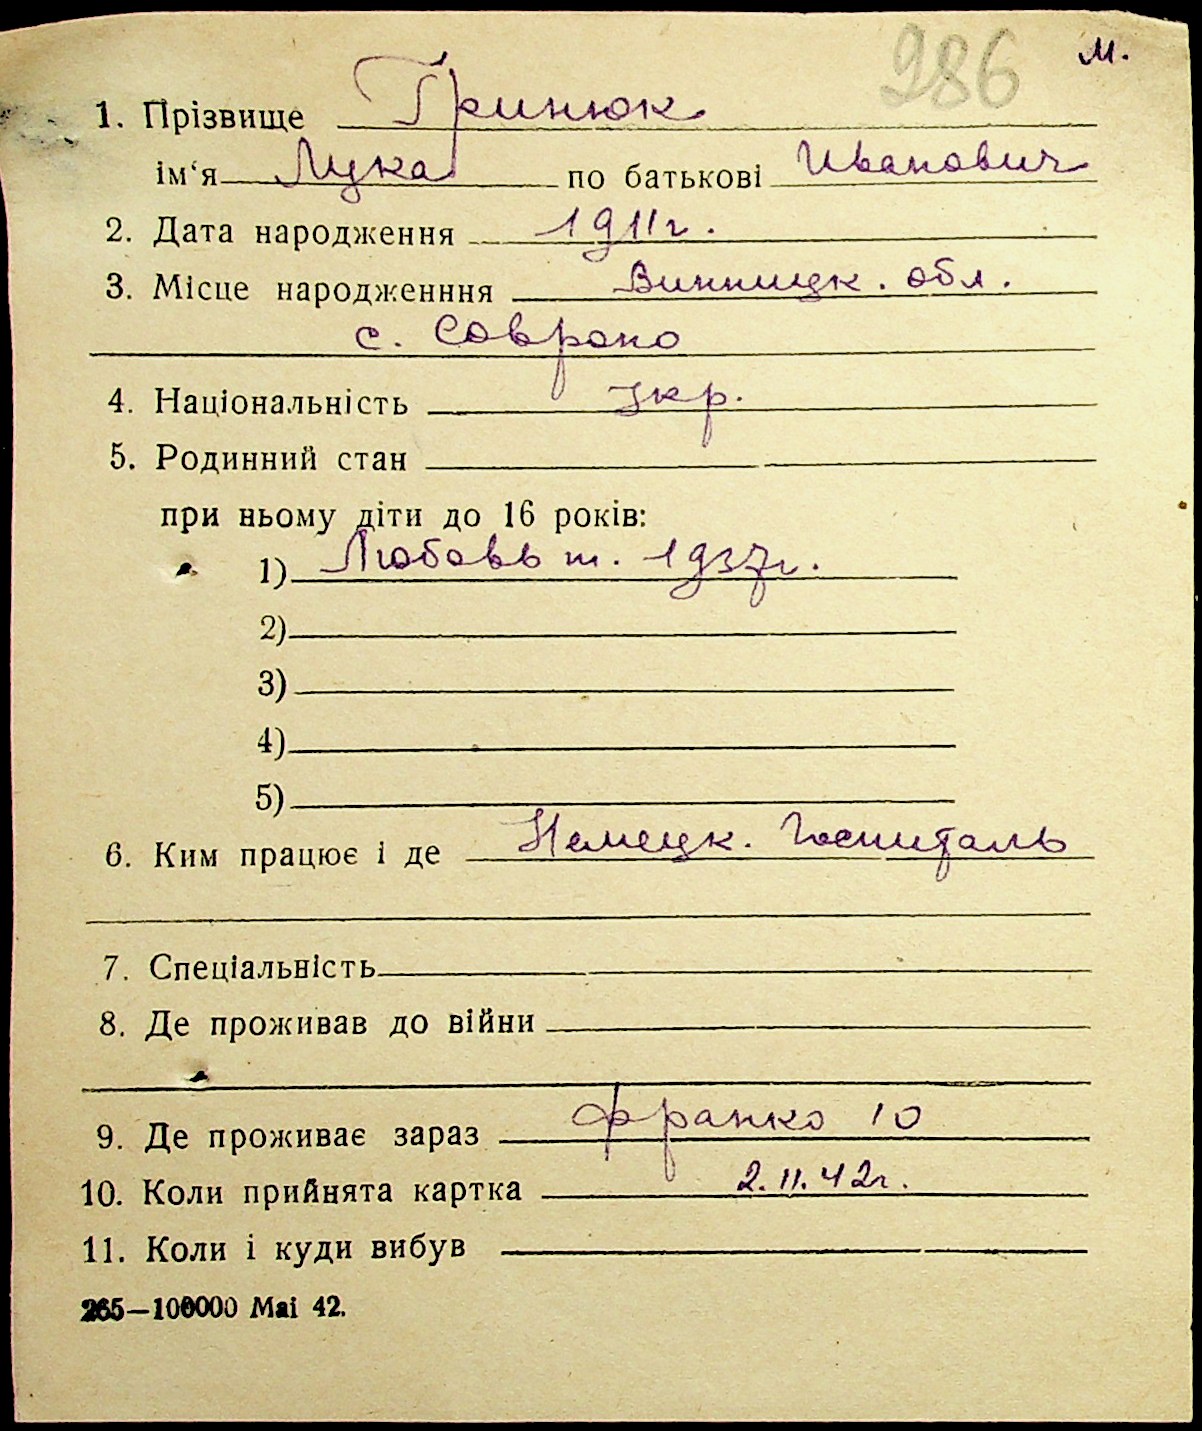 286 м.
1. Прізвище Гринюк
ім‘я Лука по батькові Иванович
2. Дата народження 1911г.
3. Місце народженння Винницк. обл.
с. Саврано
4. Національність укр.
5. Родинний стан
при ньому діти до 16 років:
1) Любовь т. 1937г.
2)
3)
4)
5)
6. Ким працює і де Немецк. Госпиталь
7. Спеціальність
8. Де проживав до війни
9. Де проживає зараз Франко 10
10. Коли прийнята картка 2.11.42г.
11. Коли і куди вибув
265—100000 Маі 42.